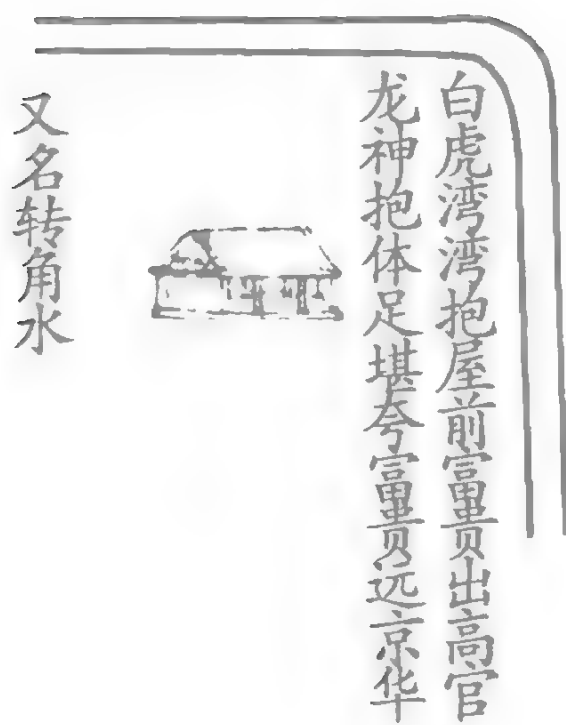 白虎湾湾抱屋前富贵出高官
龙神抱体足堪夸富贵远京华
又名转角水